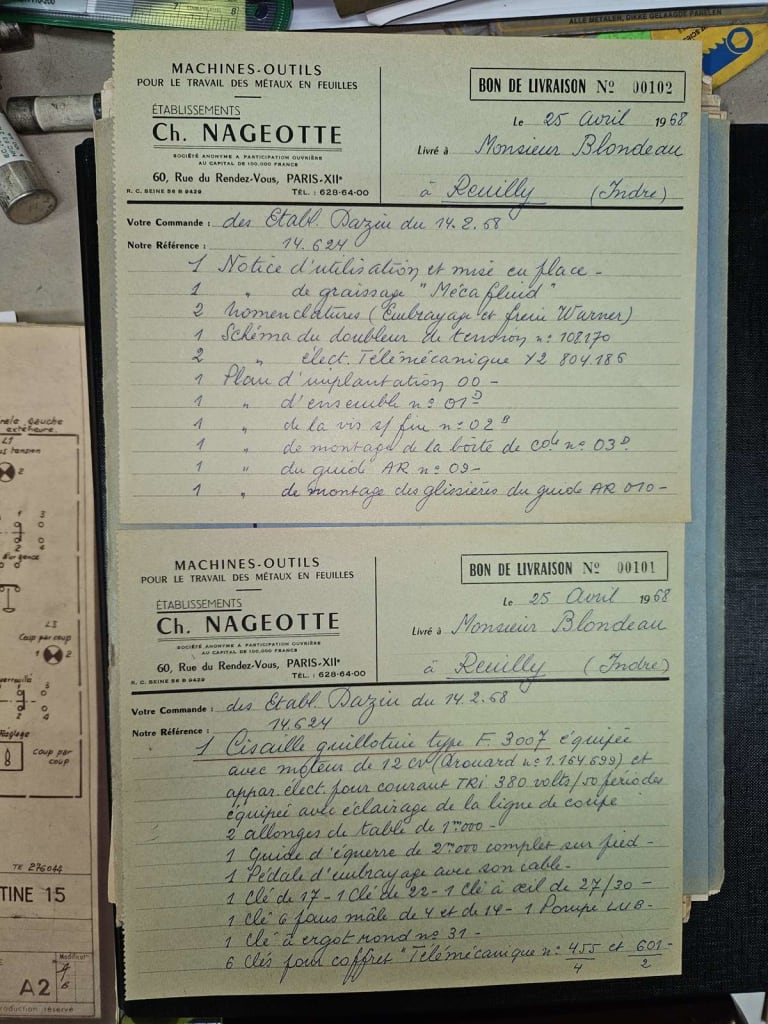 ALLE METALEN, DIKKE GELAAGDE PANELEN
MACHINES-OUTILS
POUR LE TRAVAIL DES MÉTAUX EN FEUILLES
ÉTABLISSEMENTS
Ch. NAGEOTTE
SOCIÉTÉ ANONYME A PARTICIPATION OUVRIÈRE
AU CAPITAL DE 100.000 FRANCS
60, Rue du Rendez-Vous, PARIS-XIIe
R. C. SEINE 56 B 9429 TÉL. : 628-64-00
BON DE LIVRAISON No 00102
Le 25 Avril 1968
Livré à Monsieur Blondeau
à Reuilly (Indre)
Votre Commande : des Etabl. Dazin du 14.2.68
Notre Référence : 14.624
1 Notice d'utilisation et mise en place -
1 " de graissage "Méca fluid"
2 Nomenclatures (Embrayage et frein Warner)
1 Schéma du doubleur de tension n° 108170
2 " élect. Télémécanique Y2 804.186
1 Plan d'implantation 00 -
1 " d'ensemble n° 01 D
1 " de la vis s/ fin n° 02 B
1 " de montage de la boîte de cde n° 03 D.
1 " du guide AR n° 09 -
1 " de montage des glissières du guide AR 010 -
MACHINES-OUTILS
POUR LE TRAVAIL DES MÉTAUX EN FEUILLES
ÉTABLISSEMENTS
Ch. NAGEOTTE
SOCIÉTÉ ANONYME A PARTICIPATION OUVRIÈRE
AU CAPITAL DE 100.000 FRANCS
60, Rue du Rendez-Vous, PARIS-XIIe
R. C. SEINE 56 B 9429 TÉL. : 628-64-00
BON DE LIVRAISON No 00101
Le 25 Avril 1968
Livré à Monsieur Blondeau
à Reuilly (Indre)
Votre Commande : des Etabl. Dazin du 14.2.68
Notre Référence : 14.624
1 Cisaille guillotine type F. 3007 équipée
avec moteur de 12 cv (Drouard n° 1.164.699) et
appar. élect. pour courant TRI 380 volts/50 périodes
équipée avec éclairage de la ligne de coupe
2 allonges de table de 1m000 -
1 Guide d'équerre de 2m000 complet sur pied -
1 Pédale d'embrayage avec son cable -
1 Clé de 17 - 1 Clé de 22 - 1 Clé à œil de 27/30 -
1 Clé 6 pans mâle de 4 et de 14 - 1 Pompe LUB -
1 Clé à ergot rond n° 31 -
6 Clés pour coffret "Télémécanique n° 455/4 et 601/2 -
gauche
extérieure
L1
tension
2
1 3
2 6
L3
Coup par coup
1 2
1 3
2 4
Réglage
coup par
coup
TE 276044
TINE 15
A2
Modificat